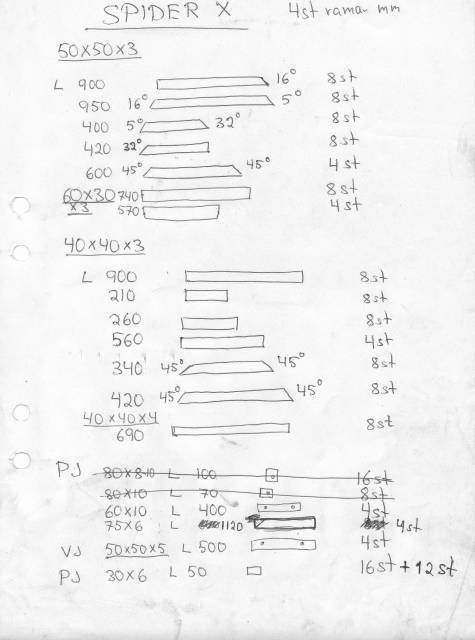 SPIDER X 4st raman mm
50x50x3
L 900 16° 8st
950 16° 5° 8st
400 5° 32° 8st
420 32° 8st
600 45° 45° 4st
60x30 740 8st
x3 570 4st
40x40x3
L 900 8st
210 8st
260 8st
560 4st
340 45° 45° 8st
420 45° 45° 8st
40x40x4
690 8st
PJ 80x8-10 L 100 16st
80x10 L 70 8st
60x10 L 400 4st
75x6 L 1120 4st
VJ 50x50x5 L 500 4st
PJ 30x6 L 50 16st + 12st